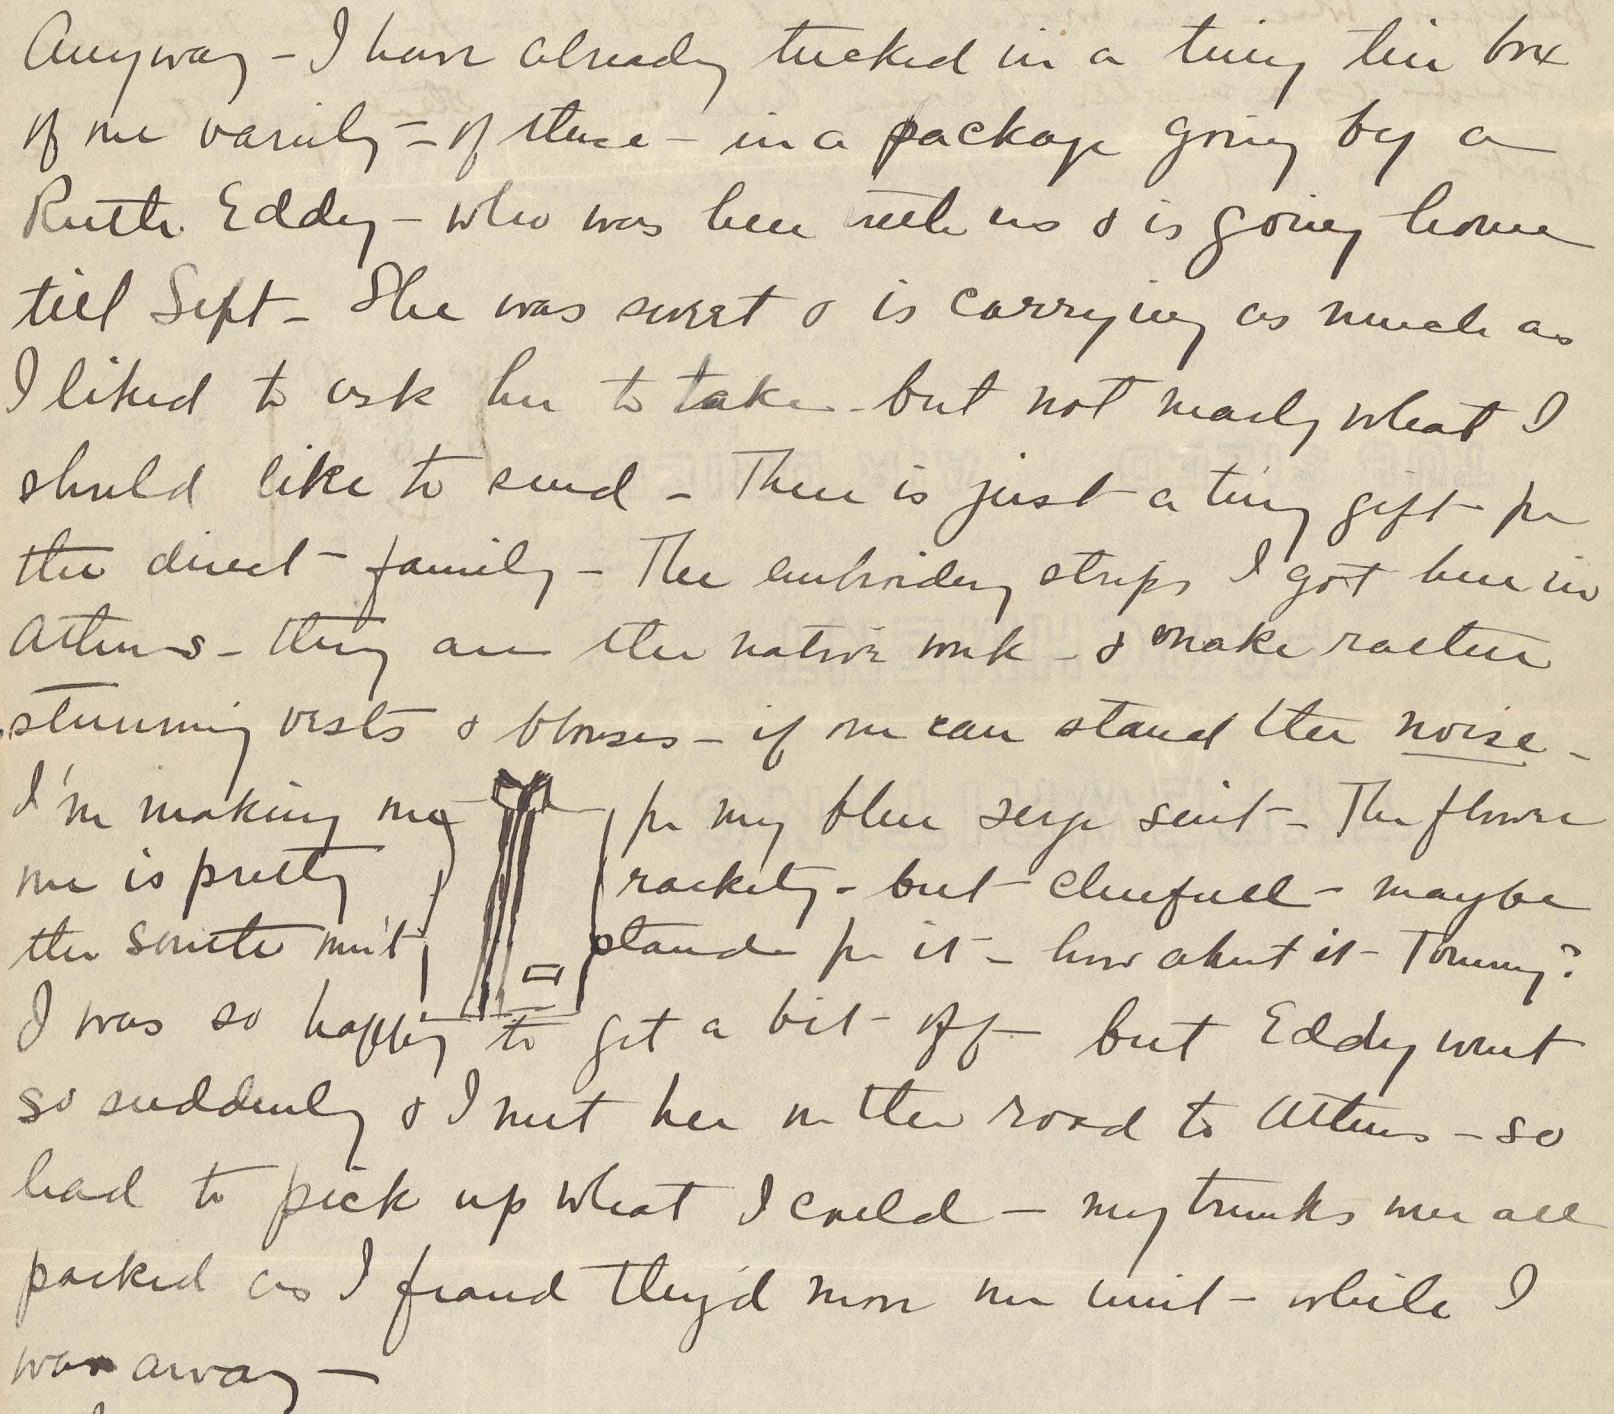 Anyway – I have already tucked in a tiny tin box
of one variety – of these – in a package going by a
Ruth Eddy – who was here with us & is going home
till Sept – She was sweet & is carrying as much as
I liked to ask her to take – but not nearly what I
should like to send – There is just a tiny gift for
the direct family – The embroidery strips I got here in
Athens – they are the native work – & make rather
stunning vests & blouses – if one can stand the noise –
I'm making one for my blue serge suit – The flower
one is pretty rackety – but cheerful – maybe
the South won't stand for it – how about it – Tommy?
I was so happy to get a bit off but Eddy went
so suddenly & I met her on the road to Athens – so
had to pick up what I could – my trunks were all
packed as I feared they'd move our unit – while I
was away –